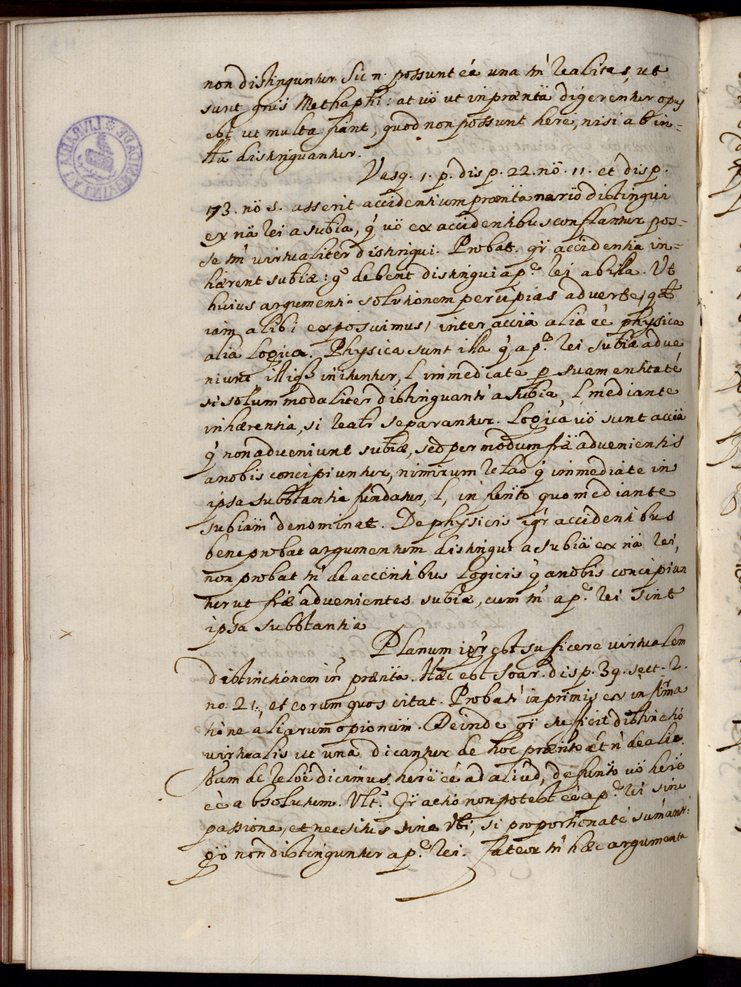 non distinguntur. Sic n. possunt eã una tñ realitas, ut
sunt grüs Methaphi: at uö ut in prænta digerentur opus
est ut multa fiant, quod non possunt here, nisi ab in-
distinguantur.
Vasq. 1. p. disp. 22. nö. 11. et disp.
173. nö 5. asserit accidentium prænta nario distingui
ex nã rei a subia, q uö ex accidentibus conflantur pos-
se tñ uirtualiter distingui. Probat. qr accidentia in-
hærent subiæ: gº debent distingui a pº rei ab illa. Ut
huius argumenti solutionem percipias aduerte, qd
iam alibi exposuimus, inter accia alia eẽ physica
alia Logica. Physica sunt illa q, a pº rei subiæ adue
niunt illiqȝ inituntur, l immediate p suam entitatẽ
si solum modaliter distinguant a subia, l mediante
inhærentia, si realr separantur. Logica uö sunt accia
q non adueniunt subiæ, sed per modum fræ aduenientis
a nobis concipiuntur, nimirum relaõ q immediate in
ipsa substantia fundatur, l, in funto quo mediante
subiam denominat. De physicis igr accidentibus
bene probat argumentum distingui a subia ex nã rei,
non probat tñ de accentibus Logicis q a nobis concipiun
tur ut fræ aduenientes subiæ, cum tñ a pº rei sint
ipsa substantia
Planum igr est suficere uirtualem
distinctionem inr prænta. Hæc est Soar. disp. 39. sect. 2.
no. 21. et eorum quos citat. Probatr in primis ex infirma
tione aliarum opionum. Deinde qr suficit distinctiö
uirtualis ut una dicantur de hoc prænto et ñ de alie.
Nam de reloe dicimus here eẽ ad aliud, de funto uö here
eẽ absolutum. Ult. Qr actio non potest eẽ a pº rei sine
passione, et nec situs sine Ubi, si proportionatẽ sumant:
gö non distinguntur a pº rei. fateor tñ hæc argumenta